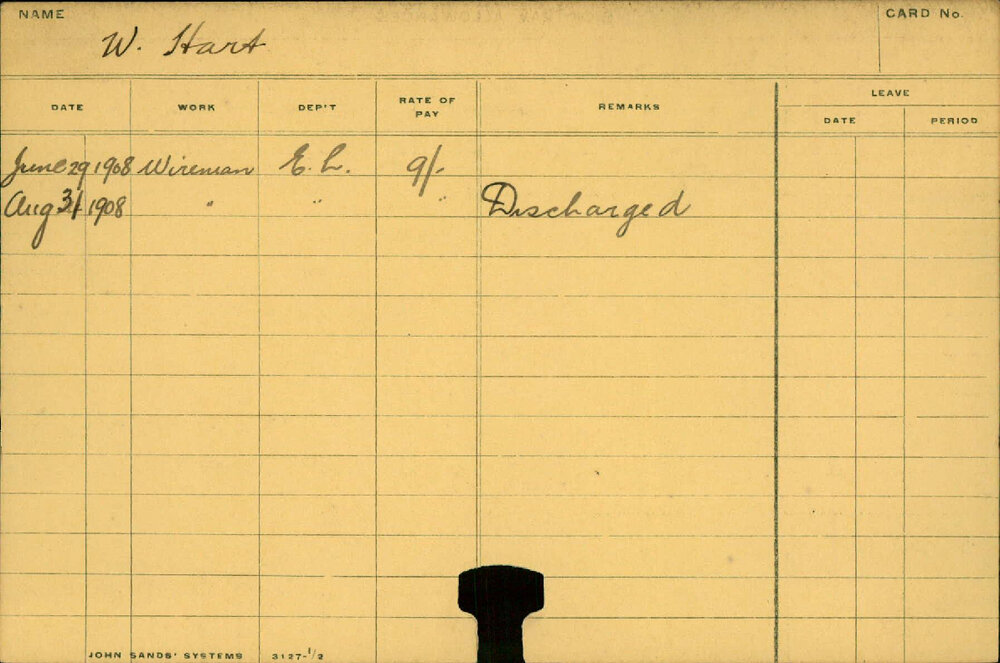 NAME CARD No.
W. Hart
DATE WORK DEP'T RATE OF PAY REMARKS LEAVE
DATE PERIOD
June 29 1908 Wireman E. L. 9/-
Aug 31 1908 " " " Discharged
JOHN SANDS' SYSTEMS 3127-1/2